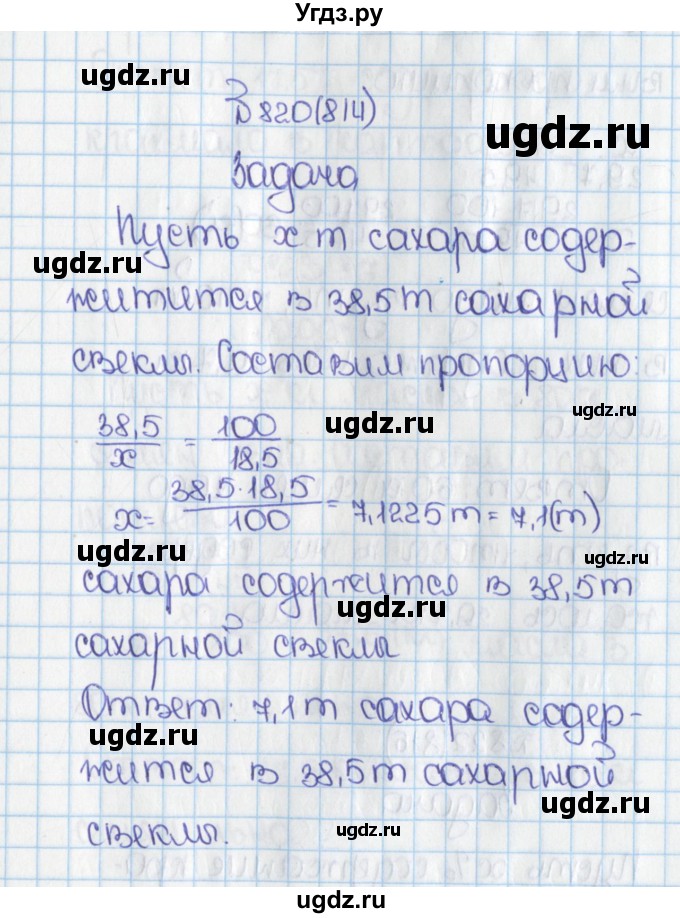 Угдз.ру
ugdz.ru
№820(814)
ugdz.ru
Задача
Пусть x т сахара содер-
ugdz.ru
житится в 38,5т сахарной
свеклы. Составим пропорцию:
ugdz.ru
38,5/x = 100/18,5
ugdz.ru
x= 38,5·18,5/100 = 7,1225т = 7,1(т)
ugdz.ru
ugdz.ru
сахара содержится в 38,5т
ugdz.ru
сахарной свеклы
Ответ: 7,1т сахара содер-
ugdz.ru
жится в 38,5т сахарной
ugdz.ru
свеклы.
ugdz.ru
ugdz.ru